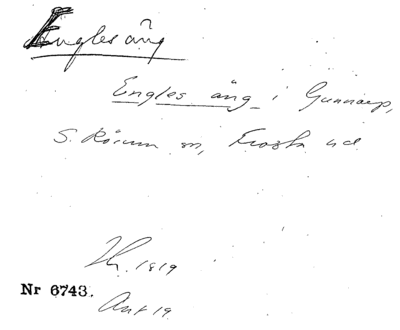 Engles äng
Engles äng i Gunnarp,
S. Rörum sn, Frosta hd
1819
Nr 6743.